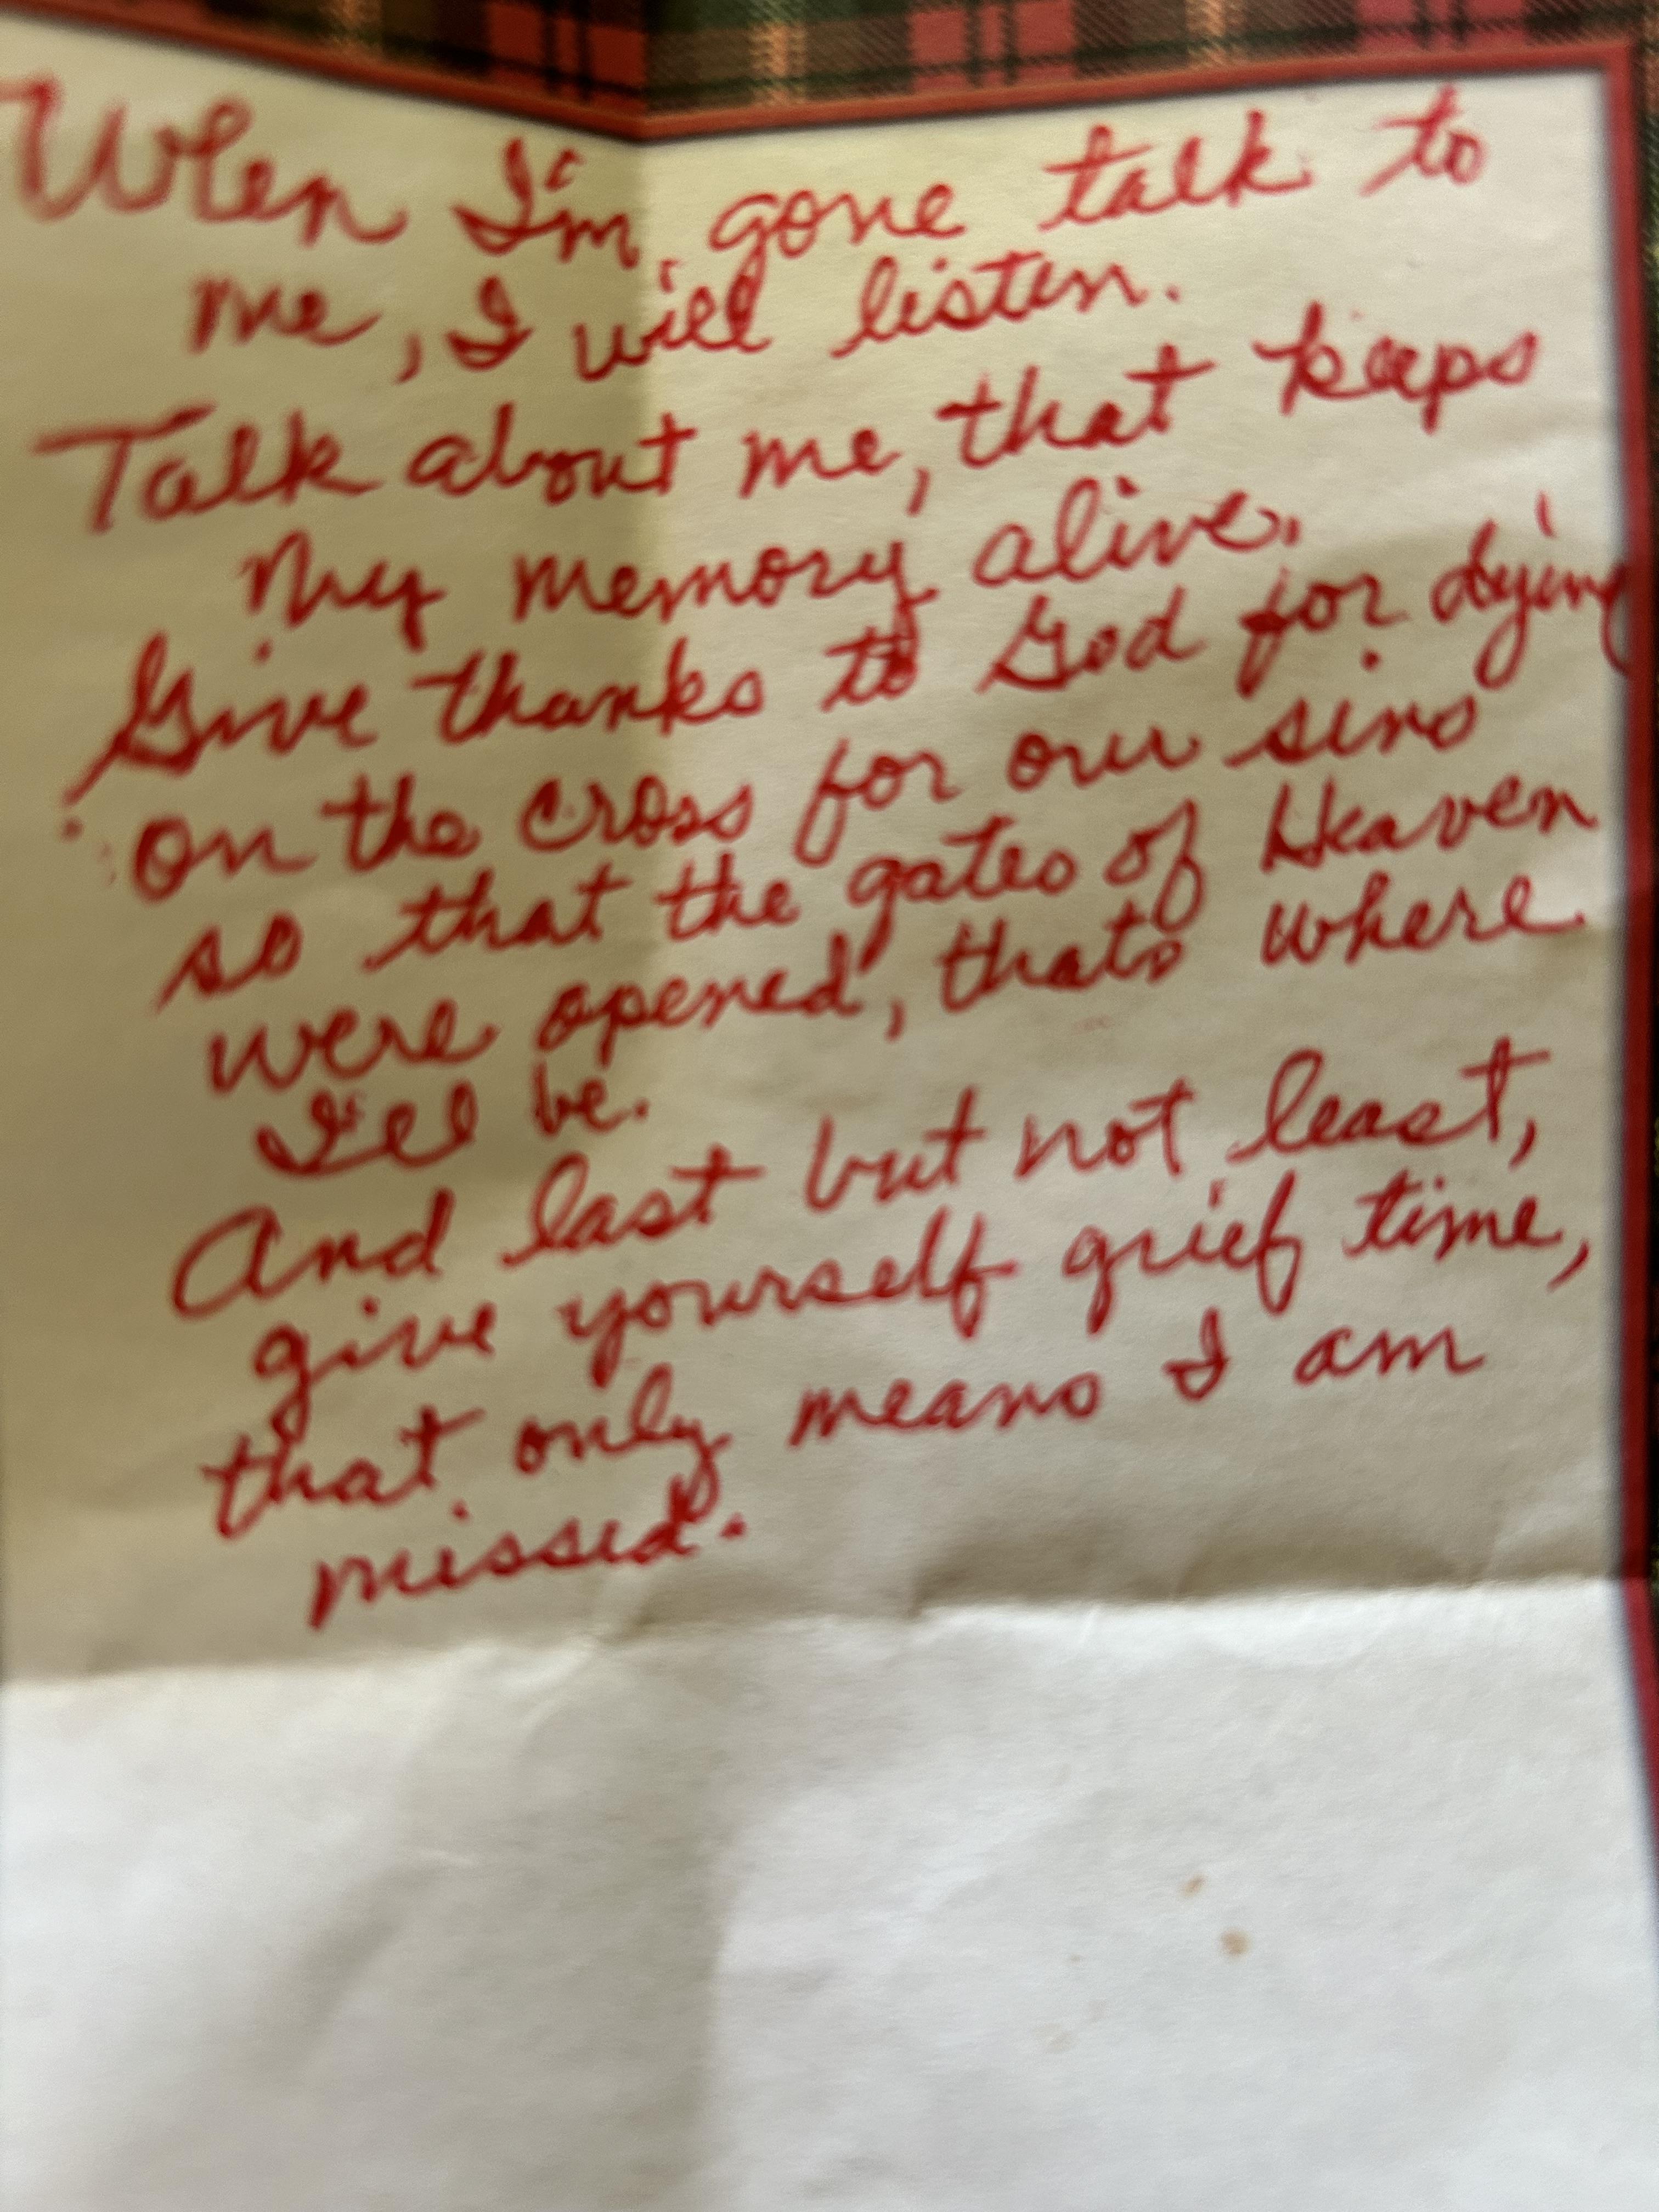 When I'm gone talk to
me, I will listen.
Talk about me, that keeps
my memory alive.
Give thanks to God for dying
on the cross for our sins
so that the gates of Heaven
were opened, thats where
I'll be.
And last but not least,
give yourself grief time,
that only means I am
missed.